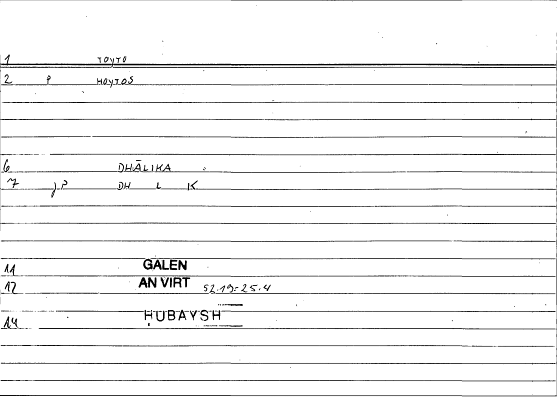 1 TOYTO
2 P HOYTOS
6 DHĀLIKA
7 J.P DH L K
11 GALEN
12 AN VIRT 52.19=25.4
14 ḤUBAYSH